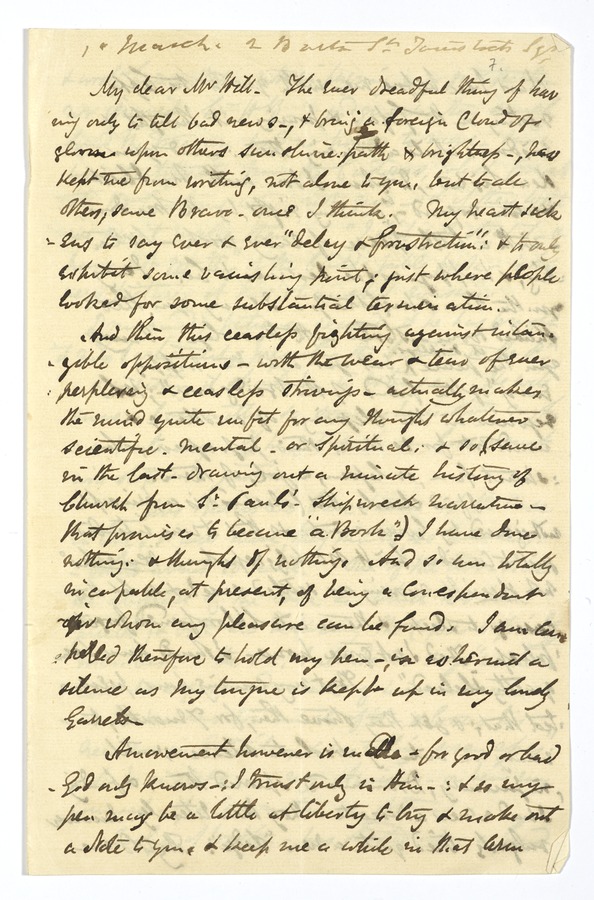 1st March. 2 Burton St. Tavistock Sqr
7.
My dear Mr Will- The ever dreadful thing of hav
ing only to tell bad news-, & bring a foreign Cloud of
gloom upon others sunshine path & brightness-, has
kept me from writing, not alone to you, but to all
others, save Bravo- once I think. My heart sick
-ens to say ever & ever "delay & frustration": & to only
exhibit some vanishing point; just where people
looked for some substantial termination.
And then this ceaseless fighting against intan-
-gible oppositions- with the wear & tear of ever
perplexing & ceaseless strivings- actually makes
the mind quite unfit for any thought whatever
scientific. mental- or spiritual: & so (save
in the last- drawing out a minute history of
Church from St. Paul's- Shipwreck narrative-
that promises to become "a Book") I have done
nothing: & thought of nothing. And so am totally
incapable, at present, of being a Correspondent
in whom any pleasure can be found. I am com
-pelled therefore to hold my pen-, in as hermit a
silence as my tongue is kept up in my lonely
Garret-
A movement however is made - for good or bad
-God only knows-: I trust only in Him-: & so my
pen may be a little at liberty to try & make out
a Note to you, & keep me a while in that warm